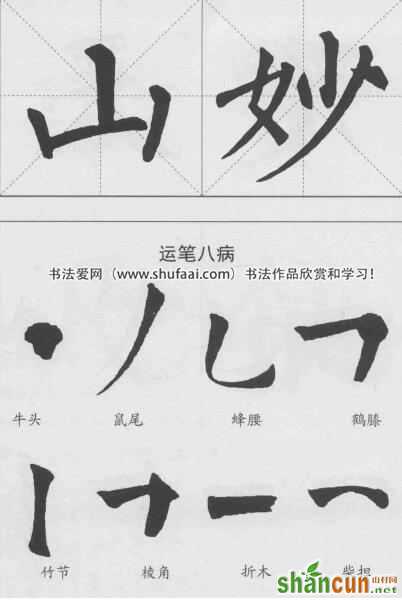 山妙
运笔八病
书法爱网（www.shufaai.com）书法作品欣赏和学习！
牛头 鼠尾 蜂腰 鹤膝
竹节 棱角 折木 柴担
shancun 山村网
.net